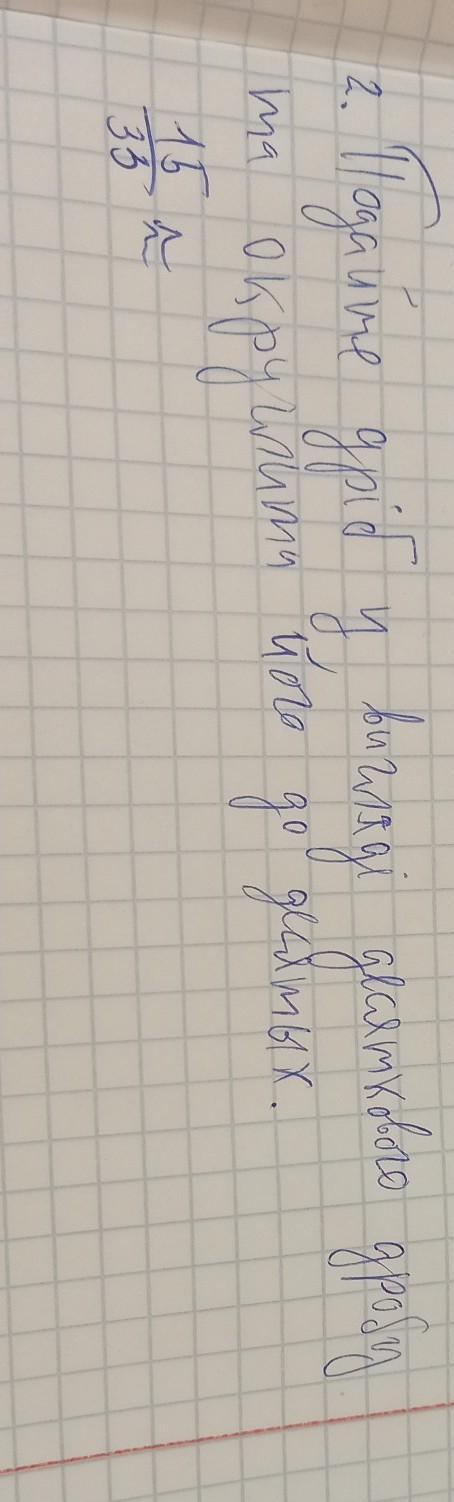 2. Подайте дріб у вигляді десяткового дробу
та округлити його до десятых.
15/33 ≈